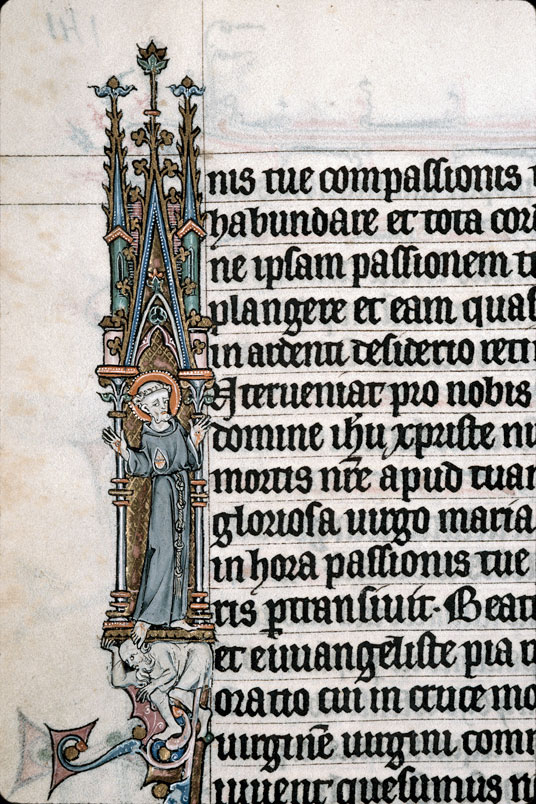 nis tue compassionis
habundare et tota cor
ne ipsam passionem
plangere et eam quas
in ardenti desiderio reti
Interueniat pro nobis
domine ihu xpriste
mortis nr̄e apud tuam
gloriosa uirgo maria
in hora passionis tue
tis ꝑtransiuit. Beat
et euuangeliste pia
oratio cui in cruce mo
uirginē uirgini com
uiuent quesumus